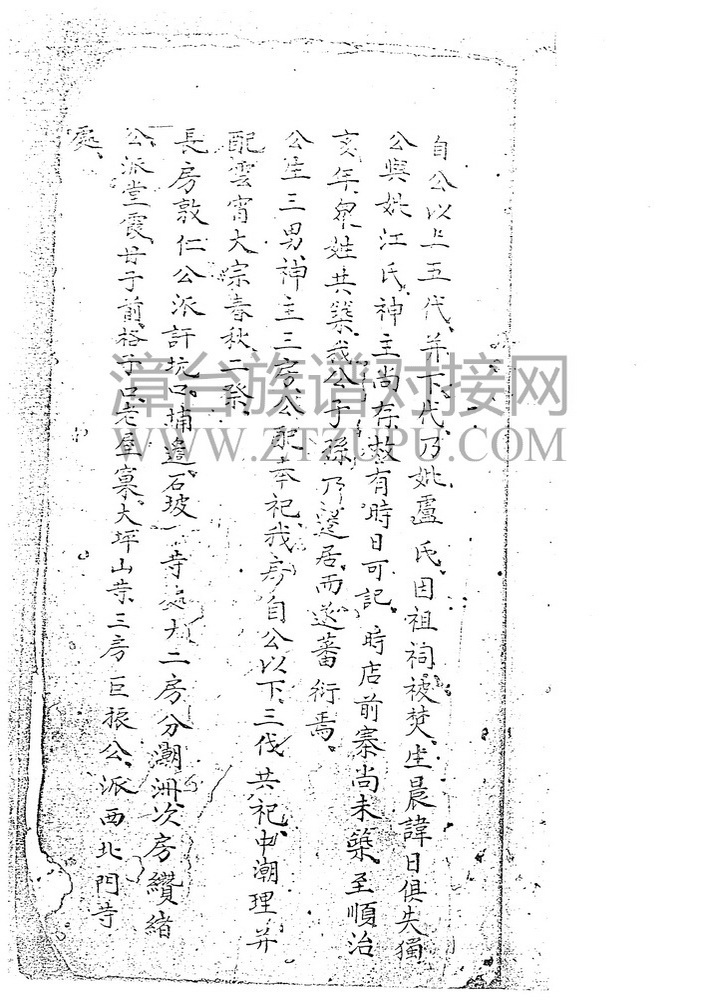 自公以上五代、并下代、乃妣盧氏、因祖祠被焚、生晨諱日俱失、獨
公與妣江氏、神主尚存、故有時日可記、時店前寨尚未築、至順治
亥年、眾姓共築、我公子孫、乃遷居、而遂蕃衍焉。
公生三男、神主三房、公眾奉祀、我房自公以下、三代共祀、中潮理并
配雲霄大宗春秋二祭、
長房敦仁公派許坑口、埔邊石坡等處、二房分潮洲、次房纘緒
公、派堂霞、前格子口、老屋寨、大坪山等、三房巨振公、派西北門等
處、
漳台族谱对接网
WWW.ZTZUPU.COM